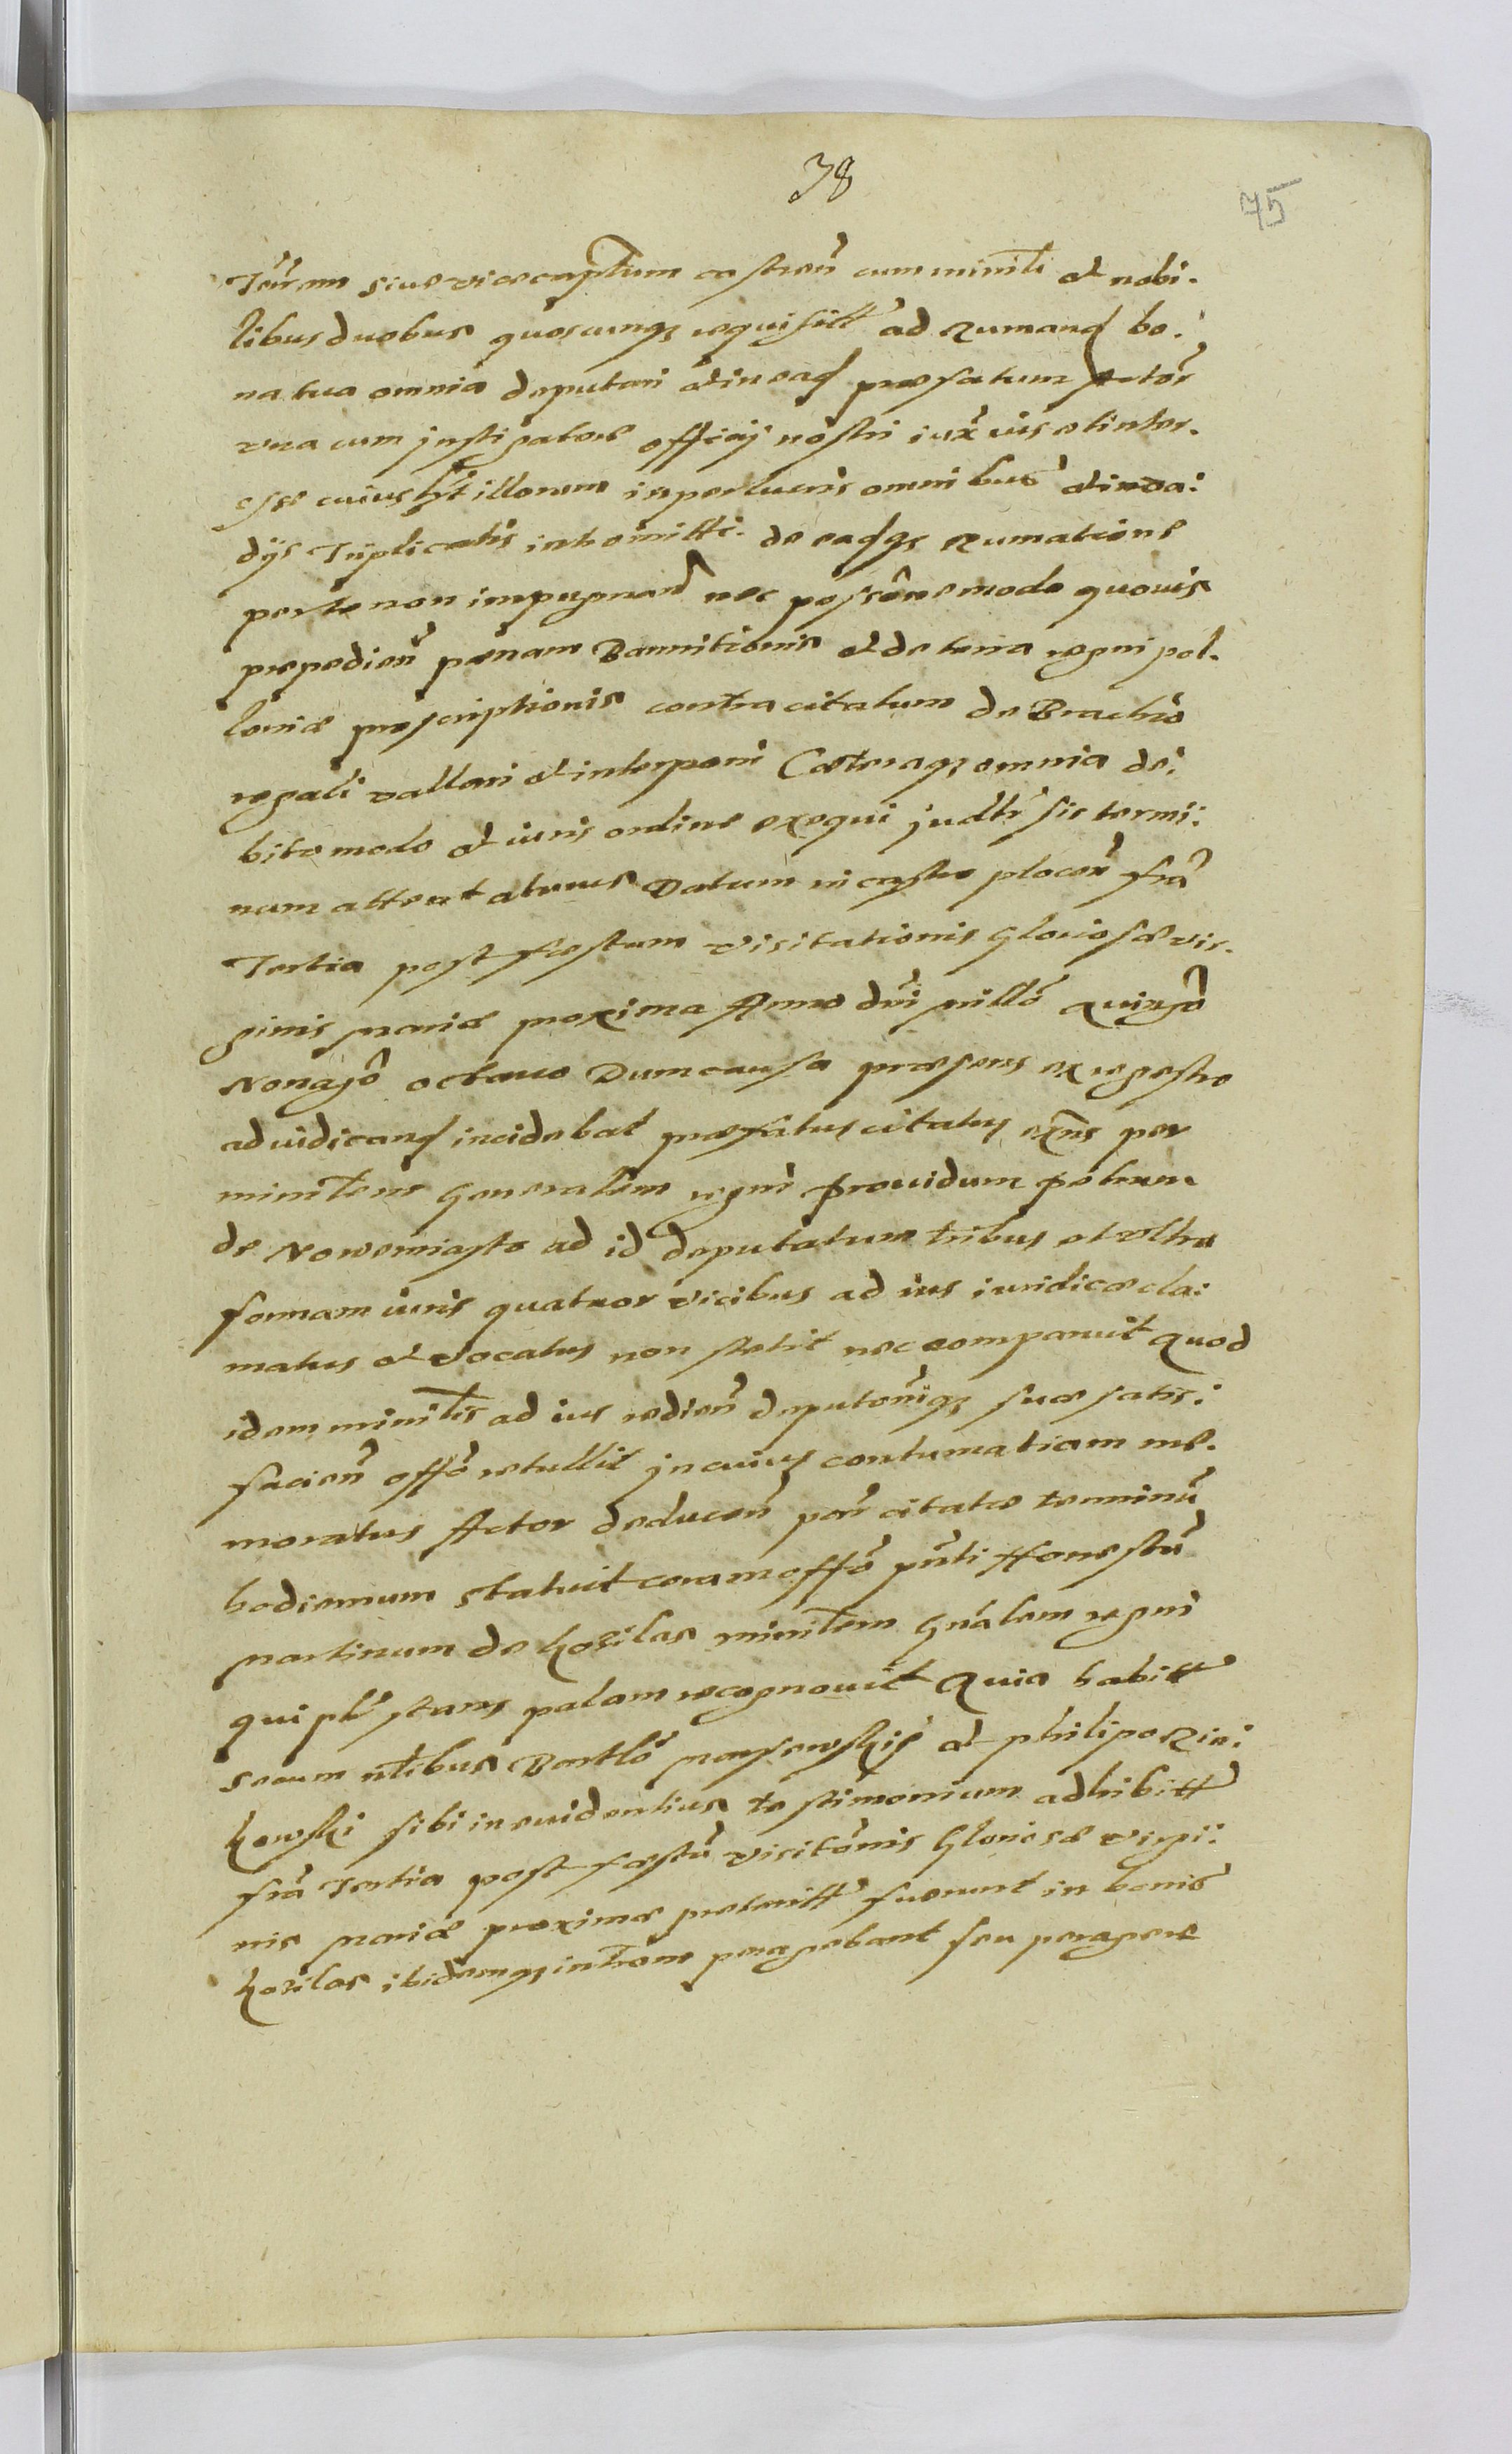 38
75
Terrm siue vicecaptum castren̄ cum minitli et nobi.
libus duobus quoscunqȝ requisitt ad Rumand bo.
na tua omnia deputari et in ead præfatum Actor
vna cum jnstigatore officij nostri iux vis et inter.
esse cuiuslt illorum in perlucris omnibus et in va:
dijs Triplicatis intromitti. de eadqȝ Rumatione
per te non impugnand nec possõne modo quouis
præpedien̄ pœnam Bannitionis et de terra regni pol.
loniæ proscriptionis contra citatum de Brachio
regali vallari et interponi Cæteraqȝ omnia de.
bito modo et iuris ordine exequi judtr sis termi:
num attentaturus Datum in castro plocen̄ fria
Tertia post festum visitationis Gloriosæ vir.
ginis mariæ proxima Anno dn̄i millo Quingo
Nonagō octauo Dum causa præsens ex regestro
adiudicand incidebat præfatus citatus exn̄s per
minitlem Generalem regni prouidum petrum
de Nowemiasto ad id deputatum tribus et vltra
formam iuris quatuor vicibus ad ius iuridicæ cla:
matus et vocatus non stetit nec comparuit Quod
idem minitlis ad ius redien̄ deputoniqȝ suæ satis:
facien̄ offo retullit jn cuius contumatiam me.
moratus Actor deducen̄ par citatæ terminū
hodiernum statuit coram offo pn̄ti Honestū
martinum de koziłas minitlem Gn̄alem regni
qui pbr stans palam recognouit Quia habitt
secum nl̄ibus Bartlō maysewskij et philipo Rie:
kowski sibi in euidentius testimonium adhibitt
fria Tertia post festū visitōnis Gloriosæ virgi:
nis mariæ proxime præteritt fuerunt in bonis
koziłas ibidemqȝ introm peragebant seu peragere